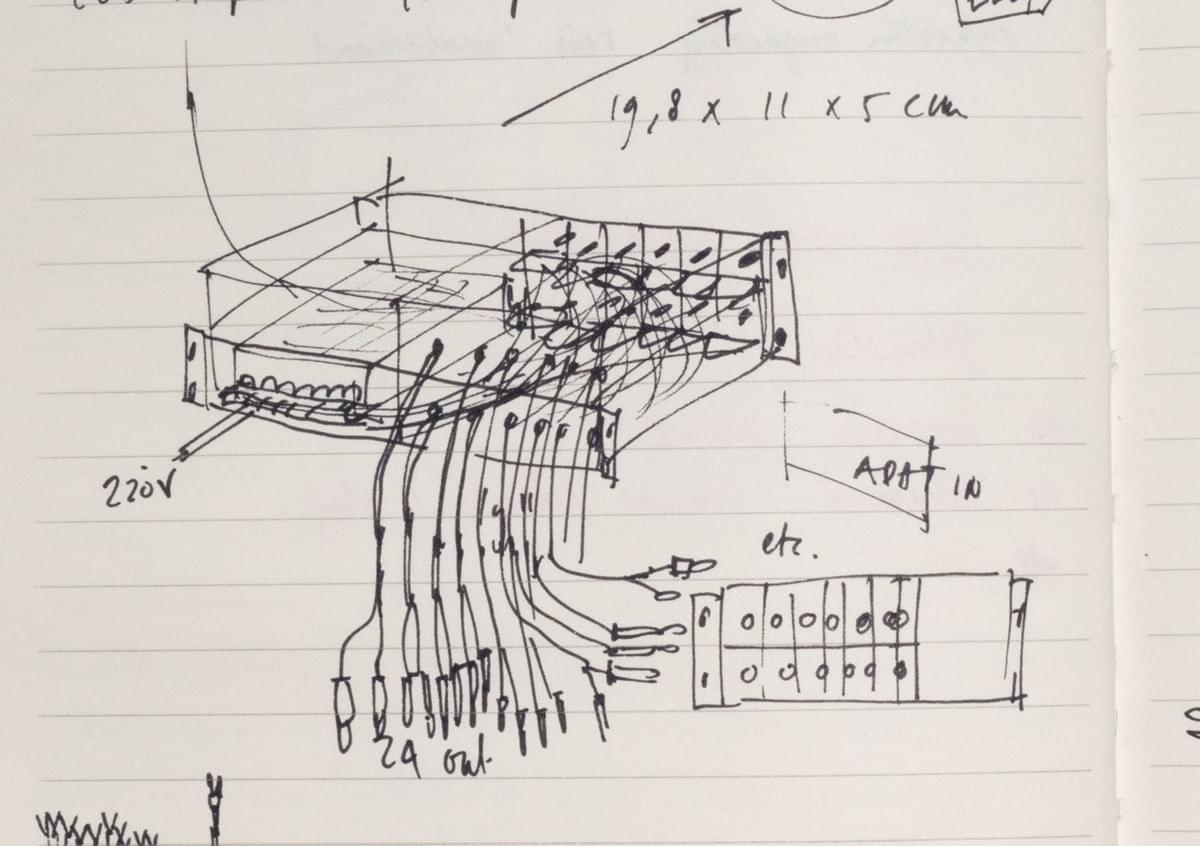 19,8 x 11 x 5 cm
220V
ADAT IN
etc.
24 out